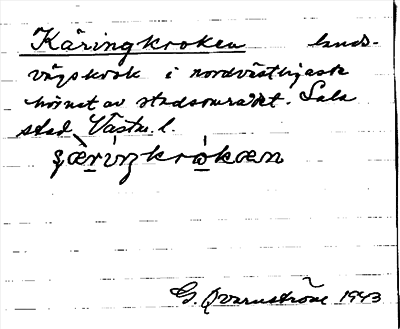 Käringkroken lands-
vägskrok i nordvästligaste
hörnet av stadsområdet. Sala
stad, Västm. l.
G. Qvarnström 1943